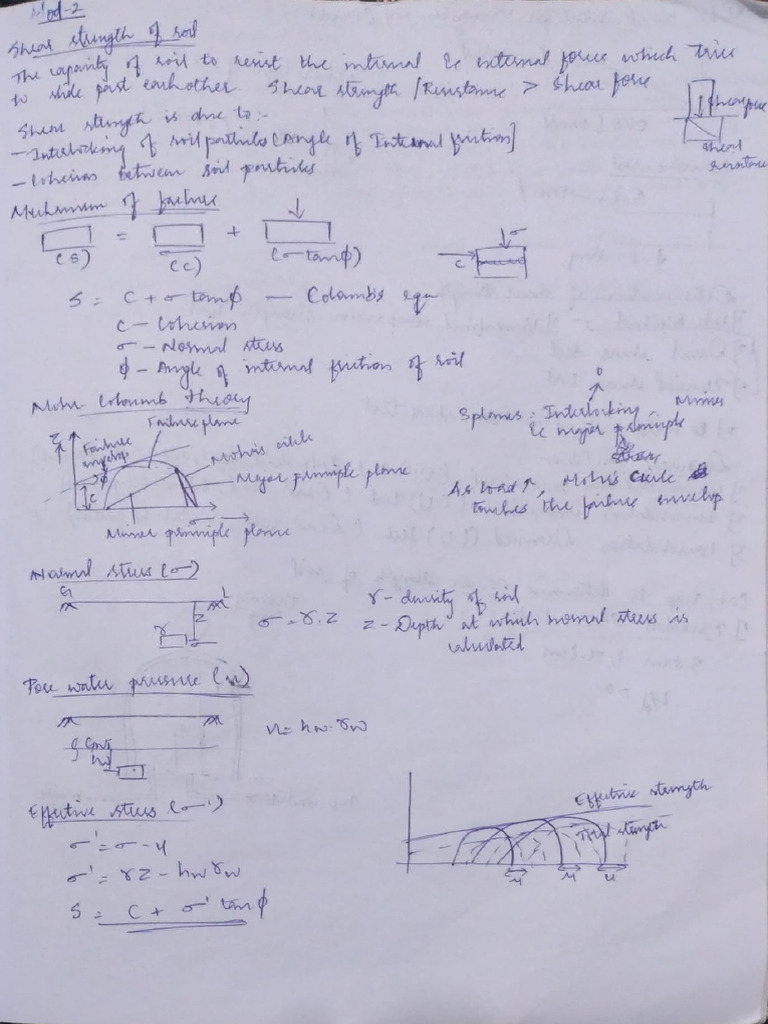 Mod-2
Shear strength of soil
The capacity of soil to resist the internal & internal force which tries
to slide past eachother. Shear strength / Resistance > Shear force
Shear force
Shear resistance
Shear strength is due to:-
- Interlocking of soil particles [Angle of Internal friction]
- Cohesion between soil particles
Mechanism of failure
= +
(S) (C) (σ tanϕ)
σ
C
S = C + σ tanϕ — Colomb's equ
C - Cohesion
σ - Normal stress
ϕ - Angle of internal friction of soil
Mohr Coloumb Theory
Failure plane
Failure envelop
Mohr's circle
Major principle plane
Minor principle plane
C
ϕ
3 planes = Interlocking, Minor
& major principle
As load ↑, Mohr's Circle
touches the failure envelop
Normal stress (σ)
G L
Z
γ
σ = γ.Z
γ - density of soil
Z - Depth at which normal stress is
calculated
Pore water pressure (u)
u = hw.γw
GWT
hw
Effective stress (σ')
σ' = σ - u
σ' = γZ - hwγw
S = C + σ' tanϕ
Effective strength
Total strength
u u u